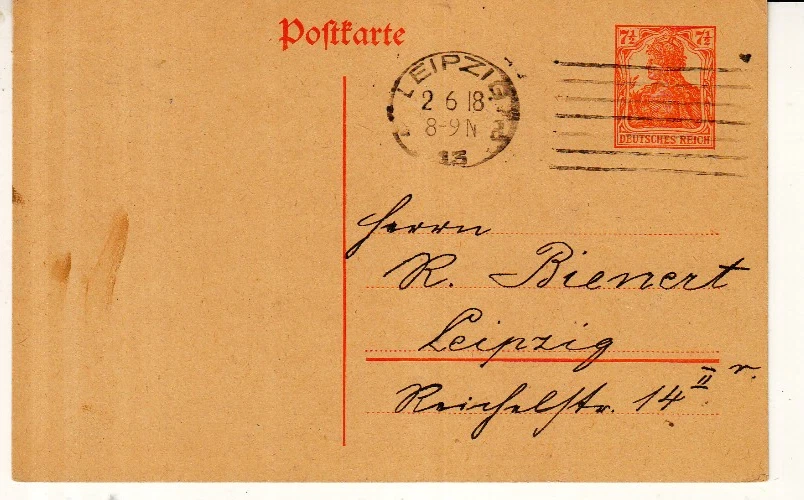 Postkarte
LEIPZIG
2 6 18.
8-9 N
13
7½ 7½
DEUTSCHES REICH
Herrn
R. Bienert
Leipzig
Reichelstr. 14 II r.